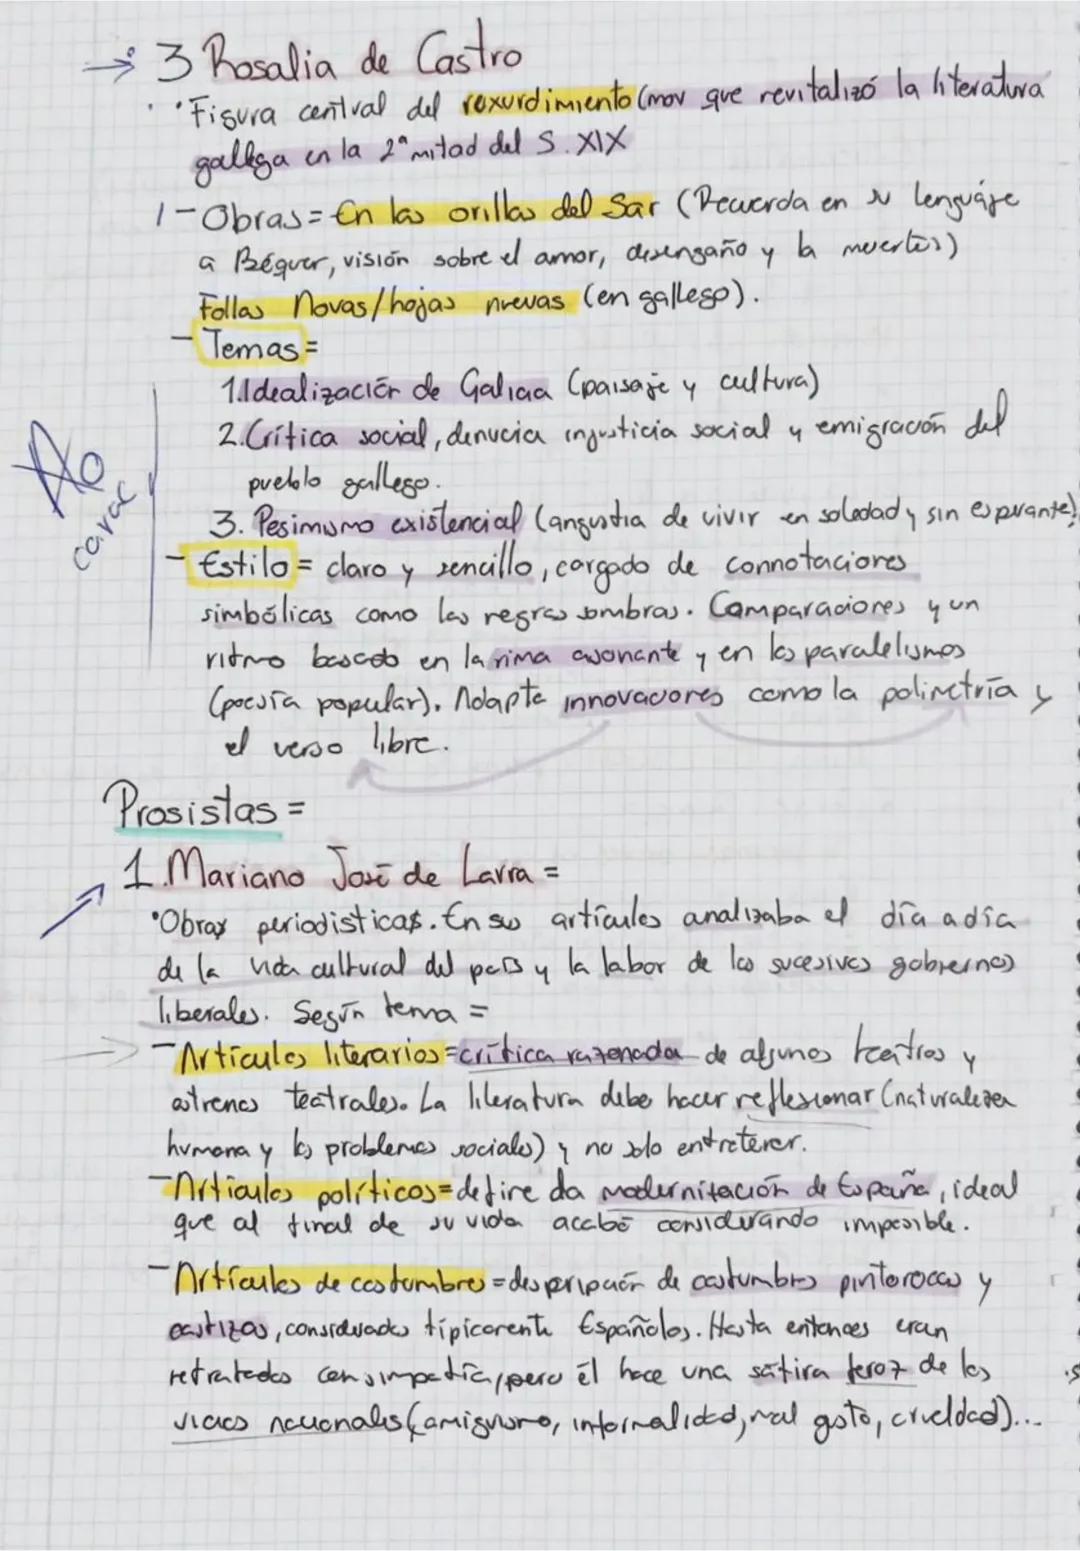 → 3 Rosalia de Castro
· Figura central del rexurdimiento (mov que revitalizó la literatura
gallega en la 2ª mitad del S. XIX
1 - Obras = En las orillas del Sar (Recuerda en su lenguaje
a Béquer, visión sobre el amor, desengaño y la muertes)
Follas Novas/hojas nuevas (en gallego).
- Temas =
1. Idealización de Galicia (paisaje y cultura)
2. Crítica social, denucia injusticia social y emigración del
pueblo gallego.
3. Pesimismo existencial (angustia de vivir en soledad y sin esperante)
- Estilo = claro y sencillo, cargado de connotaciones
simbólicas como las negras sombras. Comparaciones y un
ritmo basado en la rima asonante y en los paralelismos
(poesía popular). Adapta innovaciones como la polimetría y
el verso libre.
Prosistas =
1. Mariano José de Larra =
· Obras periodisticas. En sus artículos analizaba el día a día
de la vida cultural del país y la labor de los sucesivos gobiernos
liberales. Según tema =
- Artículos literarios = crítica razonada de algunos teatros y
estrenos teatrales. La literatura debe hacer reflexionar (naturaleza
humana y los problemas sociales) y no solo entretener.
- Artículos políticos = defire da modernización de España, ideal
que al final de su vida acabó considerando imposible.
- Artículos de costumbres = despripción de costumbres pintorocas y
castizas, considerados típicamente Españolos. Hasta entonces eran
retratados con simpatía, pero él hace una sátira feroz de los
vicios nacionales (amiguismo, informalidad, mal gusto, crueldad)...